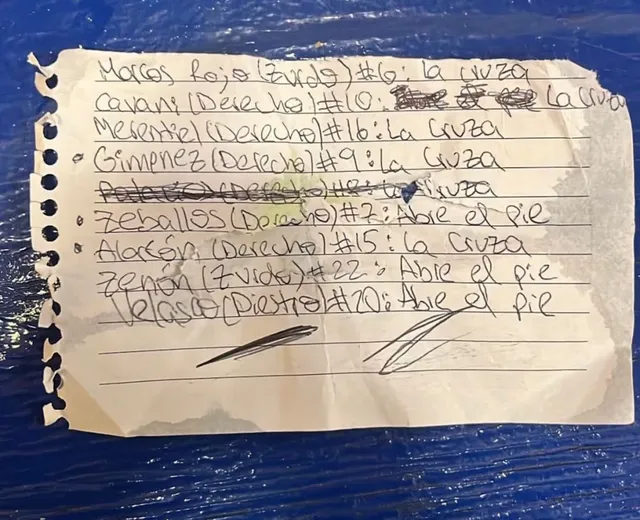 Marcos Rojo (Zurdo) #6: La cruza
Cavani (Derecho) #10: La Cruza
Merentiel (Derecho) #16: La Cruza
Gimenez (Derecho) #9: La Cruza
Palacios (Derecho) #8: La Cruza
Zeballos (Derecho) #7: Abre el pie
Alarcón (Derecho) #15: La Cruza
Zenón (Zurdo) #22: Abre el pie
Velasco (Diestro) #20: Abre el pie